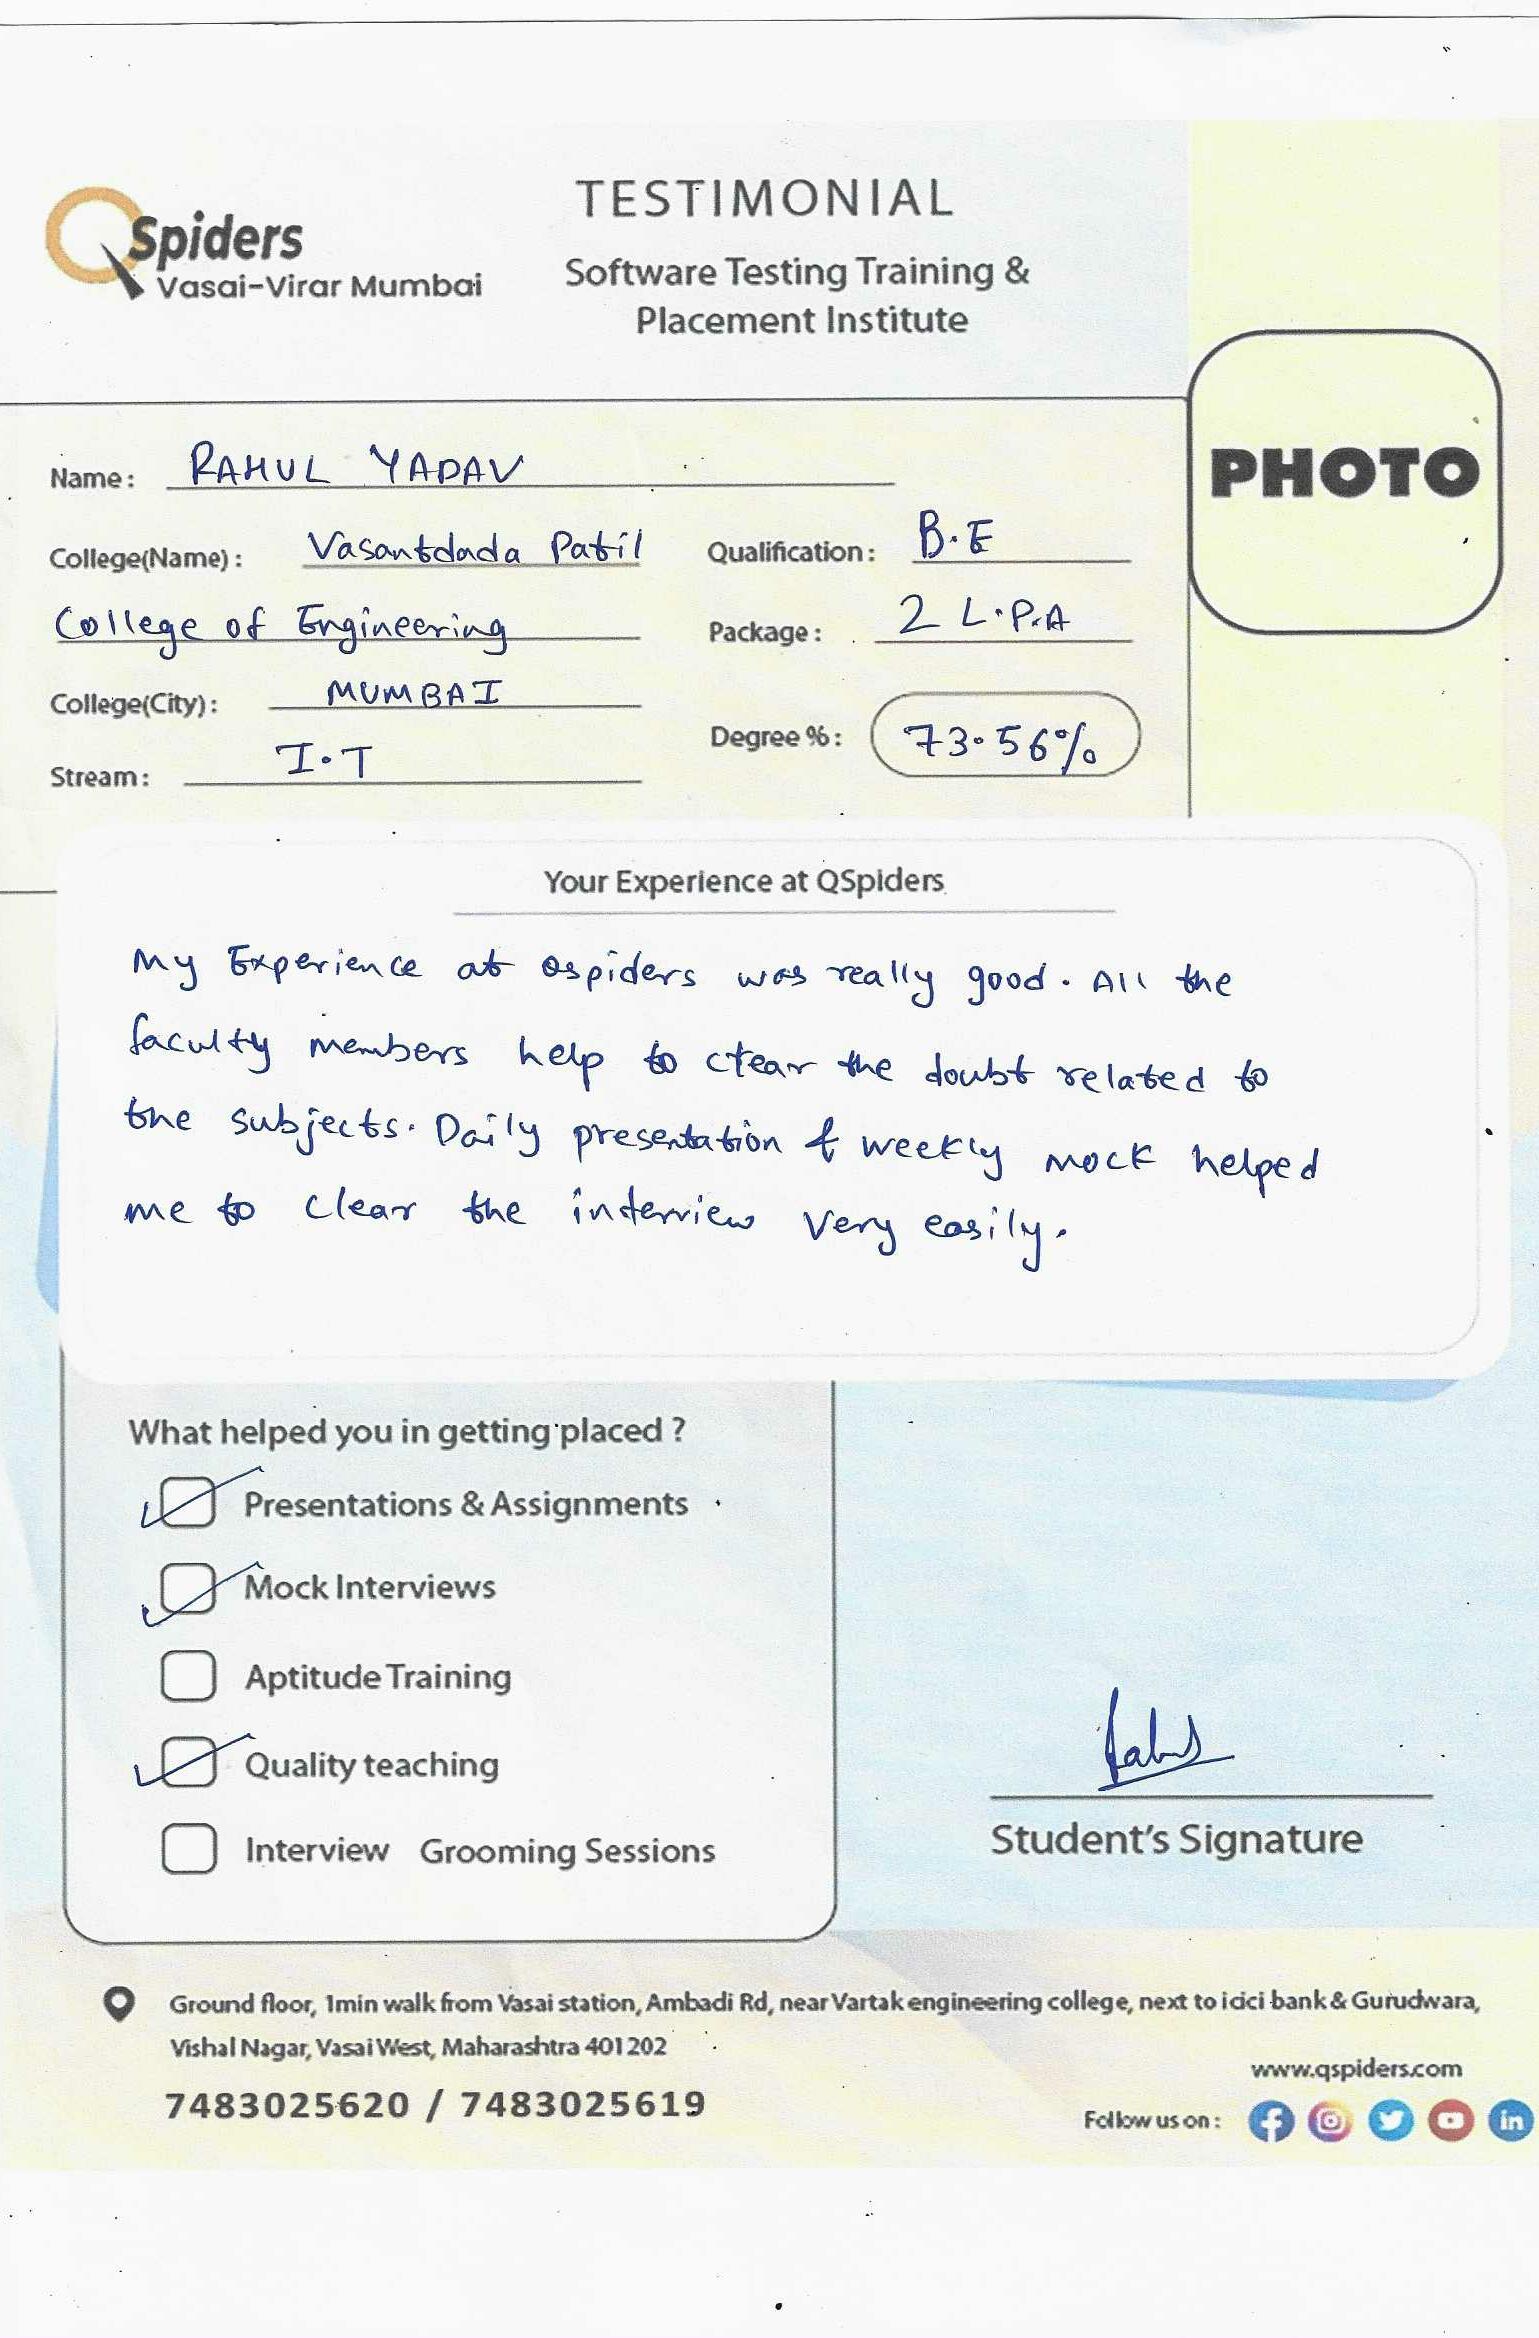 QSpiders
Vasai-Virar Mumbai
TESTIMONIAL
Software Testing Training &
Placement Institute
PHOTO
Name: RAHUL YADAV
College(Name): Vasantdada Patil
College of Engineering
College(City): MUMBAI
Stream: I.T
Qualification: B.E
Package: 2 L.P.A
Degree %: 73.56%
Your Experience at QSpiders
My Experience at Qspiders was really good. All the
faculty members help to clear the doubt related to
the subjects. Daily presentation & weekly mock helped
me to clear the interview very easily.
What helped you in getting placed ?
Presentations & Assignments
Mock Interviews
Aptitude Training
Quality teaching
Interview Grooming Sessions
Rahul
Student's Signature
Ground floor, 1min walk from Vasai station, Ambadi Rd, near Vartak engineering college, next to icici bank & Gurudwara,
Vishal Nagar, Vasai West, Maharashtra 401202
7483025620 / 7483025619
www.qspiders.com
Follow us on :